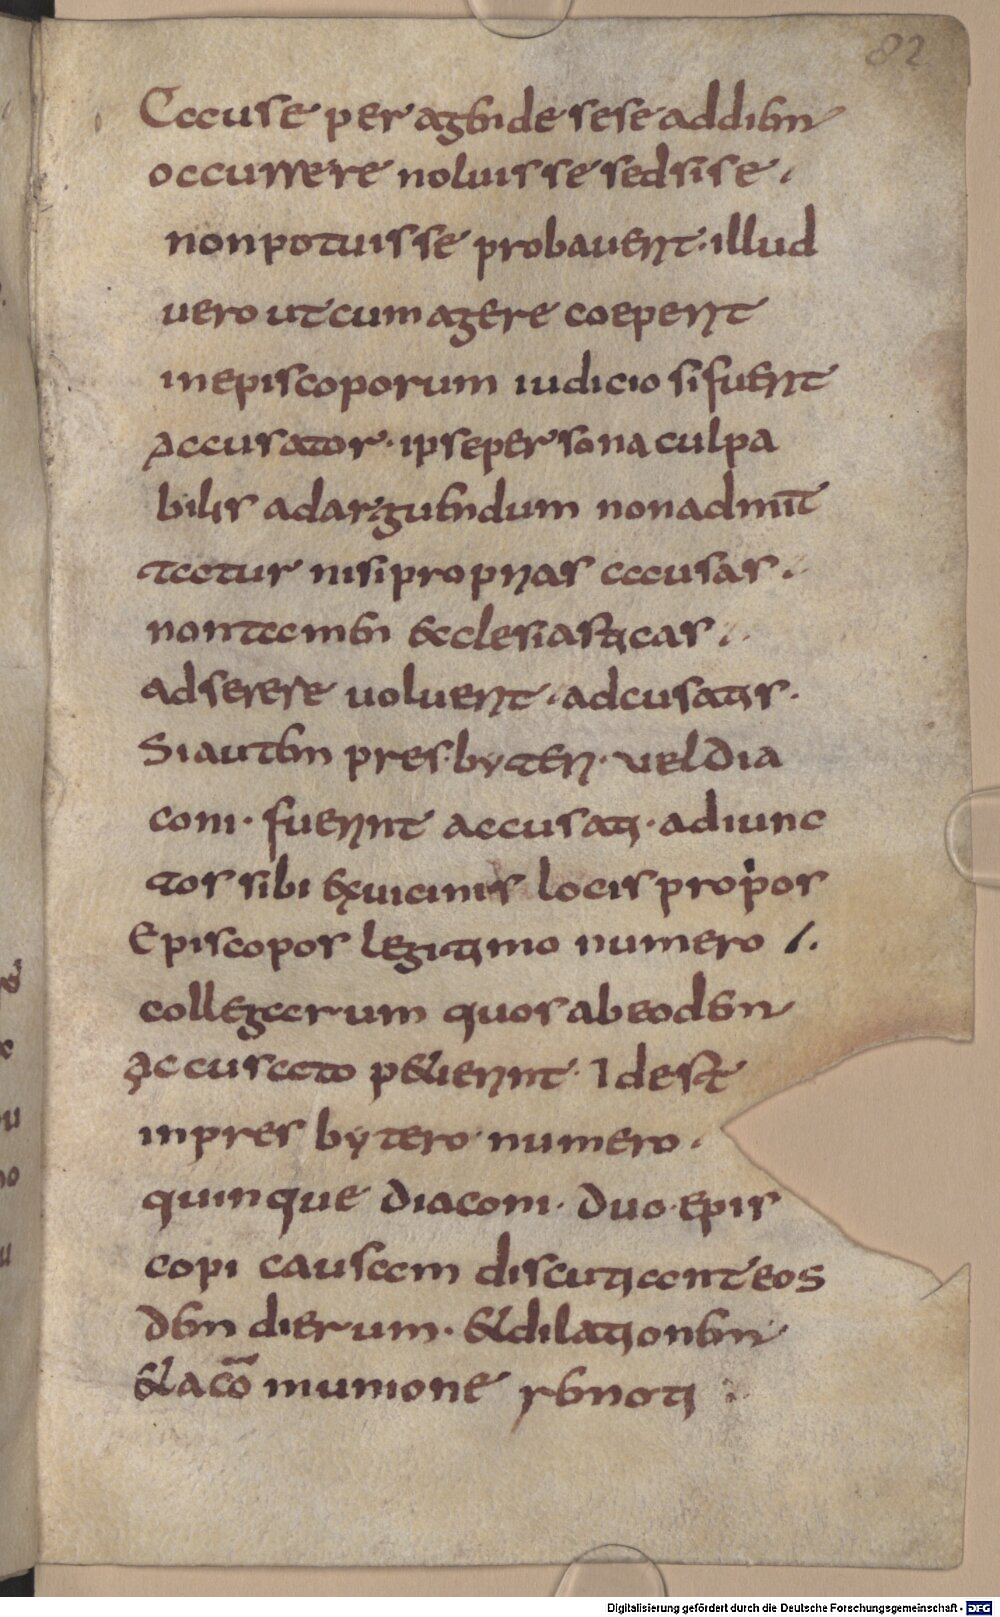 82
Cccuse peragende sese addiem
occurrere noluisse sed si se.
non potuisse probauerit. illud
uero ut cum agere coeperit
in episcoporum iudicio si fuerit
accusator. ipse persona culpa
bilis ad arguendum non admit
tatur nisi proprias causas.
non tamen ecclesiasticas.
adserere uoluerit. adcusatis.
Si autem presbyteri. uel dia
coni. fuerint accusati. adiunc
tos sibi ex uicinis locis propos
Episcopos legitimo numero .
collegarum quos ab eodem
accusato petierint. Id est
in presbytero numero.
quinque diaconi. duo. epis
copi causam discutiant eos
dem dierum. et dilationem
et a cō munione remoti
Digitalisierung gefördert durch die Deutsche Forschungsgemeinschaft - DFG